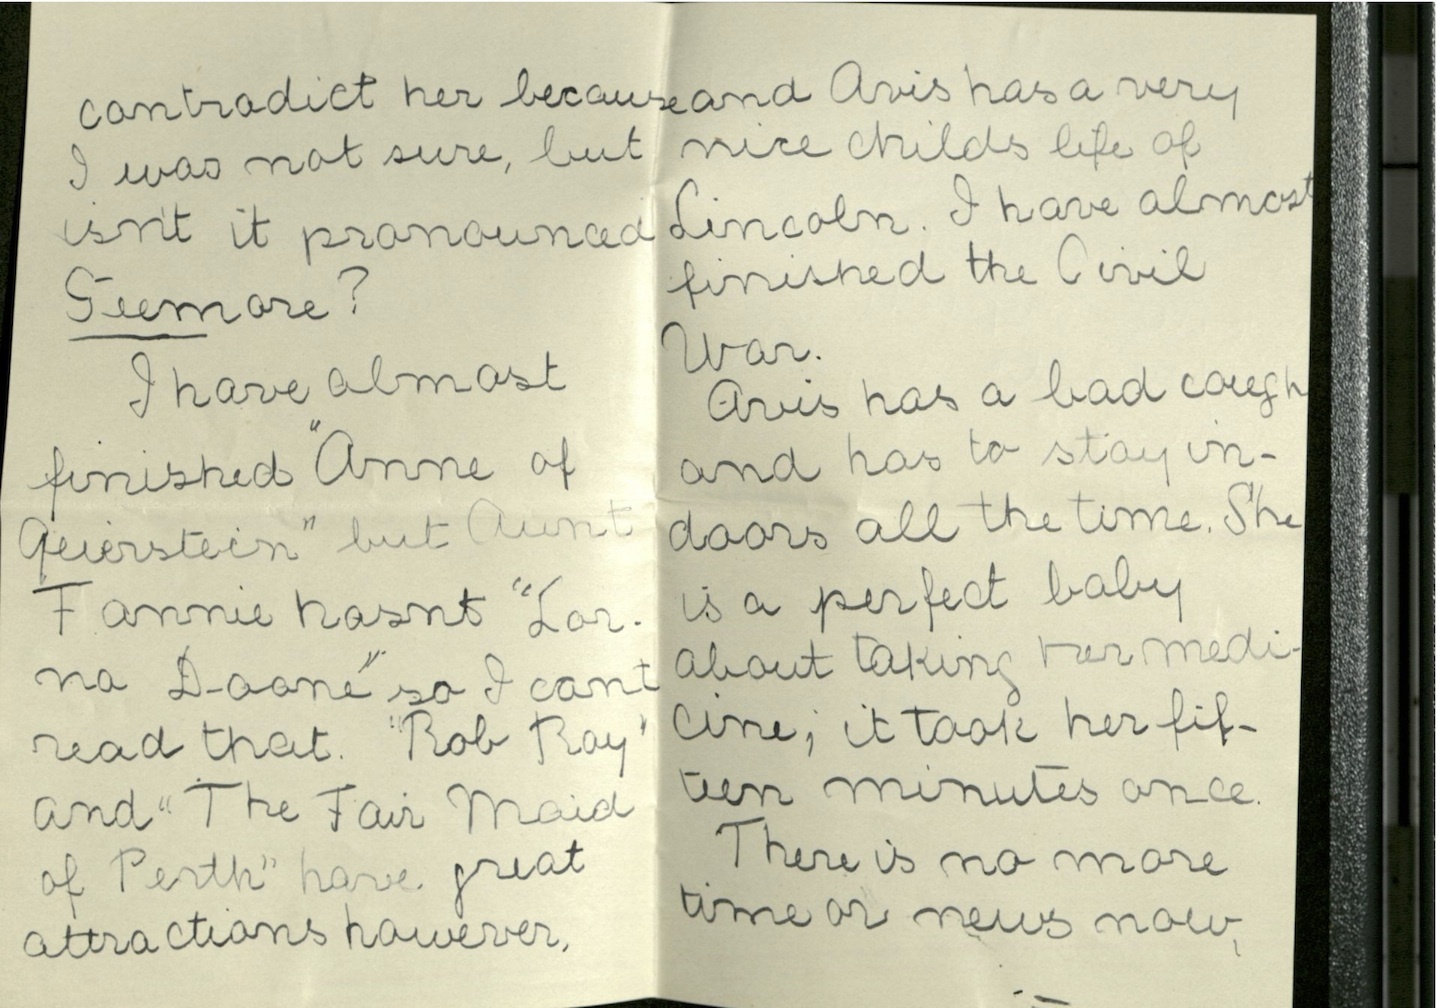 contradict her because
I was not sure, but
isn't it pronounced
Geemore?
I have almost
finished "Anne of
Geierstein" but Aunt
Fannie hasnt "Lor-
na Doone" so I can't
read that. "Rob Roy"
and "The Fair Maid
of Perth" have great
attractions however,
and Avis has a very
nice childs life of
Lincoln. I have almost
finished the Civil
War.
Avis has a bad cough
and has to stay in-
doors all the time. She
is a perfect baby
about taking her medi-
cine; it took her fif-
teen minutes once.
There is no more
time or news now,